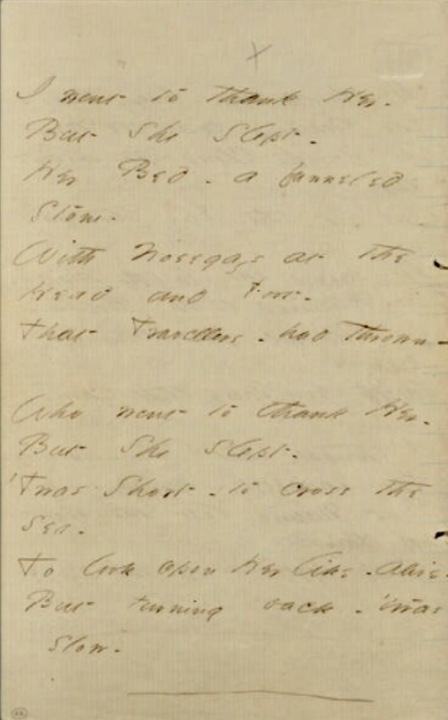 I went to thank Her -
But She Slept -
Her Bed - a funneled
Stone -
With Nosegays at the
Head and Foot -
That Travellers - had thrown -
Who went to thank Her -
But She Slept -
'Twas Short - to cross the
Sea -
To look upon Her like - alive -
But turning back - 'twas
slow -